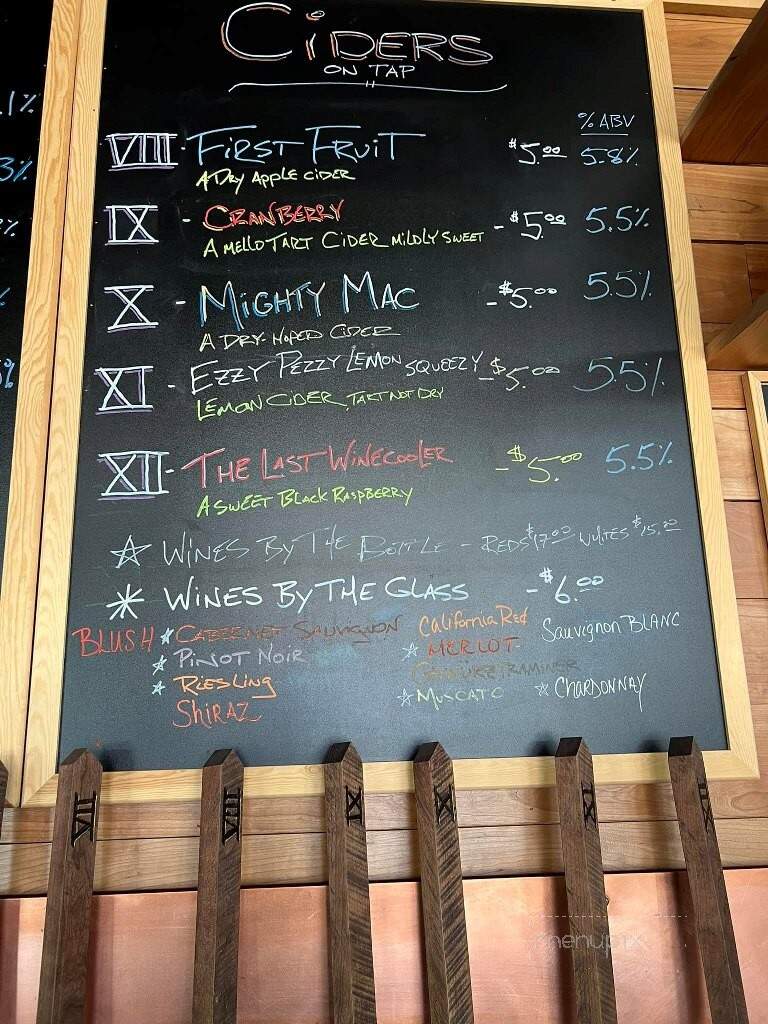 CIDERS
ON TAP
% ABV
VIII - FIRST FRUIT $5.00 5.8%
A DRY APPLE CIDER
IX - CRANBERRY - $5.00 5.5%
A MELLO TART CIDER MILDLY SWEET
X - MIGHTY MAC - $5.00 5.5%
A DRY-HOPED CIDER
XI - EZZY PEZZY LEMON SQUEEZY - $5.00 5.5%
LEMON CIDER, TART NOT DRY
XII - THE LAST WINECOOLER - $5.00 5.5%
A SWEET BLACK RASPBERRY
☆ WINES BY THE BOTTLE - REDS $17.00 WHITES $15.00
* WINES BY THE GLASS - $6.00
BLUSH ☆ CABERNET SAUVIGNON California Red Sauvignon BLANC
☆ PINOT NOIR ☆ MERLOT
☆ RIESLING GEWURZTRAMINER
SHIRAZ ☆ MUSCATO ☆ CHARDONNAY
VII VIII XI X IX XII
menupix